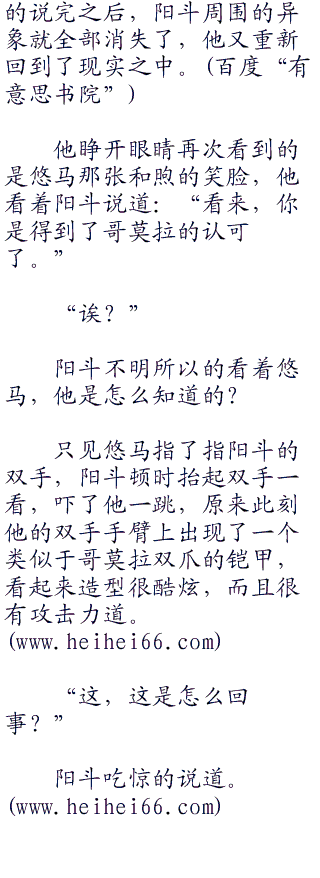 的说完之后，阳斗周围的异
象就全部消失了，他又重新
回到了现实之中。(百度“有
意思书院”)
他睁开眼睛再次看到的
是悠马那张和煦的笑脸，他
看着阳斗说道：“看来，你
是得到了哥莫拉的认可
了。”
“诶？”
阳斗不明所以的看着悠
马，他是怎么知道的？
只见悠马指了指阳斗的
双手，阳斗顿时抬起双手一
看，吓了他一跳，原来此刻
他的双手手臂上出现了一个
类似于哥莫拉双爪的铠甲，
看起来造型很酷炫，而且很
有攻击力道。
(www.heihei66.com)
“这，这是怎么回
事？”
阳斗吃惊的说道。
(www.heihei66.com)